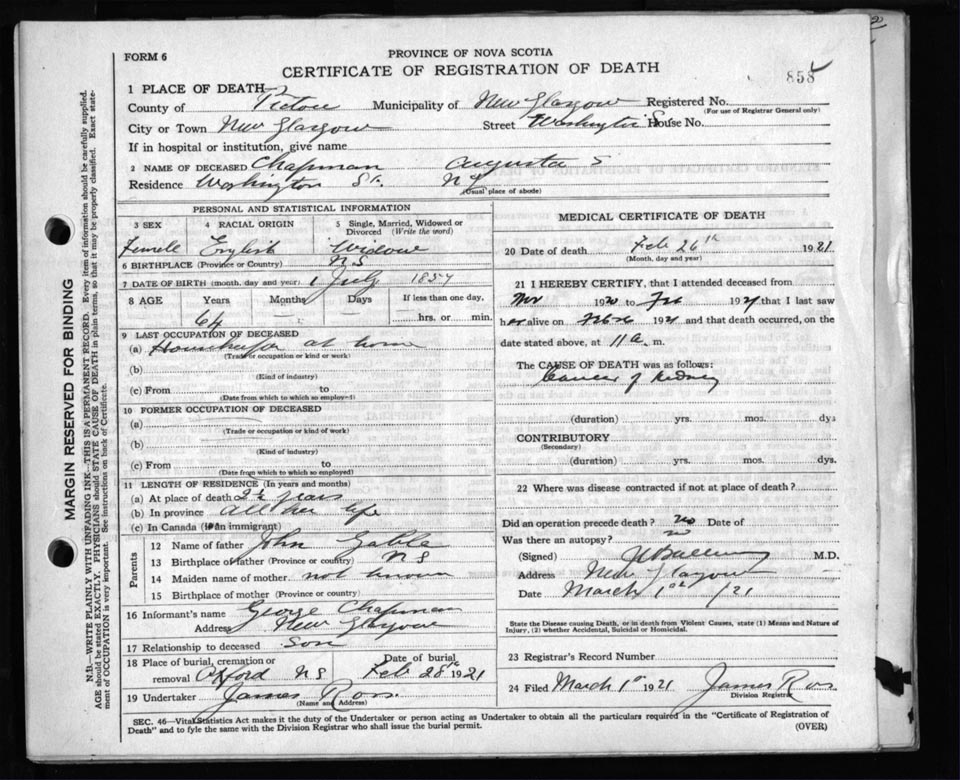 FORM 6
PROVINCE OF NOVA SCOTIA
CERTIFICATE OF REGISTRATION OF DEATH
855
1 PLACE OF DEATH
County of Pictou Municipality of New Glasgow Registered No.
(For use of Registrar General only)
City or Town New Glasgow Street Washington St House No.
If in hospital or institution, give name
2 NAME OF DECEASED Chapman Augusta S
Residence Washington St. N.G.
(Usual place of abode)
PERSONAL AND STATISTICAL INFORMATION
3 SEX 4 RACIAL ORIGIN 5 Single, Married, Widowed or Divorced (Write the word)
Female English Widow
6 BIRTHPLACE (Province or Country) N S
7 DATE OF BIRTH (month, day and year) 1 July 1857
8 AGE Years Months Days If less than one day,
64 hrs. or min.
9 LAST OCCUPATION OF DECEASED
(a) at home
(Trade or occupation or kind of work)
(b)
(Kind of industry)
(c) From to
(Date from which to which so employ-d)
10 FORMER OCCUPATION OF DECEASED
(a)
(Trade or occupation or kind of work)
(b)
(Kind of industry)
(c) From to
(Date from which to which so employed)
11 LENGTH OF RESIDENCE (In years and months)
(a) At place of death years
(b) In province all her life
(c) In Canada (if an immigrant)
Parents
12 Name of father John Gable
13 Birthplace of father (Province or country) N S
14 Maiden name of mother not known
15 Birthplace of mother (Province or country)
16 Informant's name George Chapman
Address New Glasgow
17 Relationship to deceased Son
18 Place of burial, cremation or removal Oxford N S Date of burial Feb 28th 1921
19 Undertaker James Ross.
(Name and Address)
MEDICAL CERTIFICATE OF DEATH
20 Date of death Feb 26th 1921
(Month, day and year)
21 I HEREBY CERTIFY, that I attended deceased from
Nov 1920 to Feb 1921 that I last saw
her alive on Feb 26 1921 and that death occurred, on the
date stated above, at 11 a. m.
The CAUSE OF DEATH was as follows:
Cancer of kidney
(duration) yrs. mos. dys
CONTRIBUTORY
(Secondary)
(duration) yrs. mos. dys.
22 Where was disease contracted if not at place of death?
Did an operation precede death? no Date of
Was there an autopsy? no
(Signed) M.D.
Address New Glasgow
Date March 1st /21
State the Disease causing Death, or in death from Violent Causes, state (1) Means and Nature of
Injury, (2) whether Accidental, Suicidal or Homicidal.
23 Registrar's Record Number
24 Filed March 1st 1921 James Ross.
Division Registrar
SEC. 46—Vital Statistics Act makes it the duty of the Undertaker or person acting as Undertaker to obtain all the particulars required in the "Certificate of Registration of
Death" and to fyle the same with the Division Registrar who shall issue the burial permit.
(OVER)
MARGIN RESERVED FOR BINDING
N.B.—WRITE PLAINLY WITH UNFADING INK—THIS IS A PERMANENT RECORD. Every item of information should be carefully supplied.
AGE should be stated EXACTLY. PHYSICIANS should STATE CAUSE OF DEATH in plain terms, so that it may be properly classified. Exact state-
ment of OCCUPATION is very important. See instructions on back of Certificate.